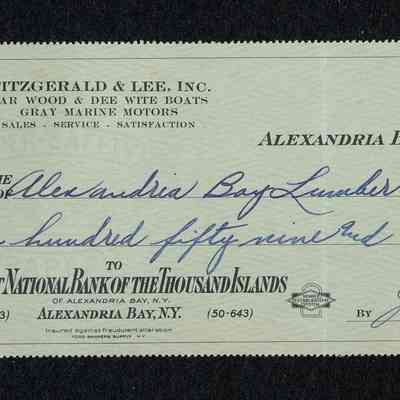 ITZGERALD & LEE, INC.
AR WOOD & DEE WITE BOATS
GRAY MARINE MOTORS
SALES - SERVICE - SATISFACTION
ALEXANDRIA B
HE
OF Alexandria Bay Lumber
hundred fifty nine and
TO
T NATIONAL BANK OF THE THOUSAND ISLANDS
OF ALEXANDRIA BAY, N.Y.
3) ALEXANDRIA BAY, N.Y. (50-643)
BY
Insured against fraudulent alteration
TODD BANKERS SUPPLY N.Y.